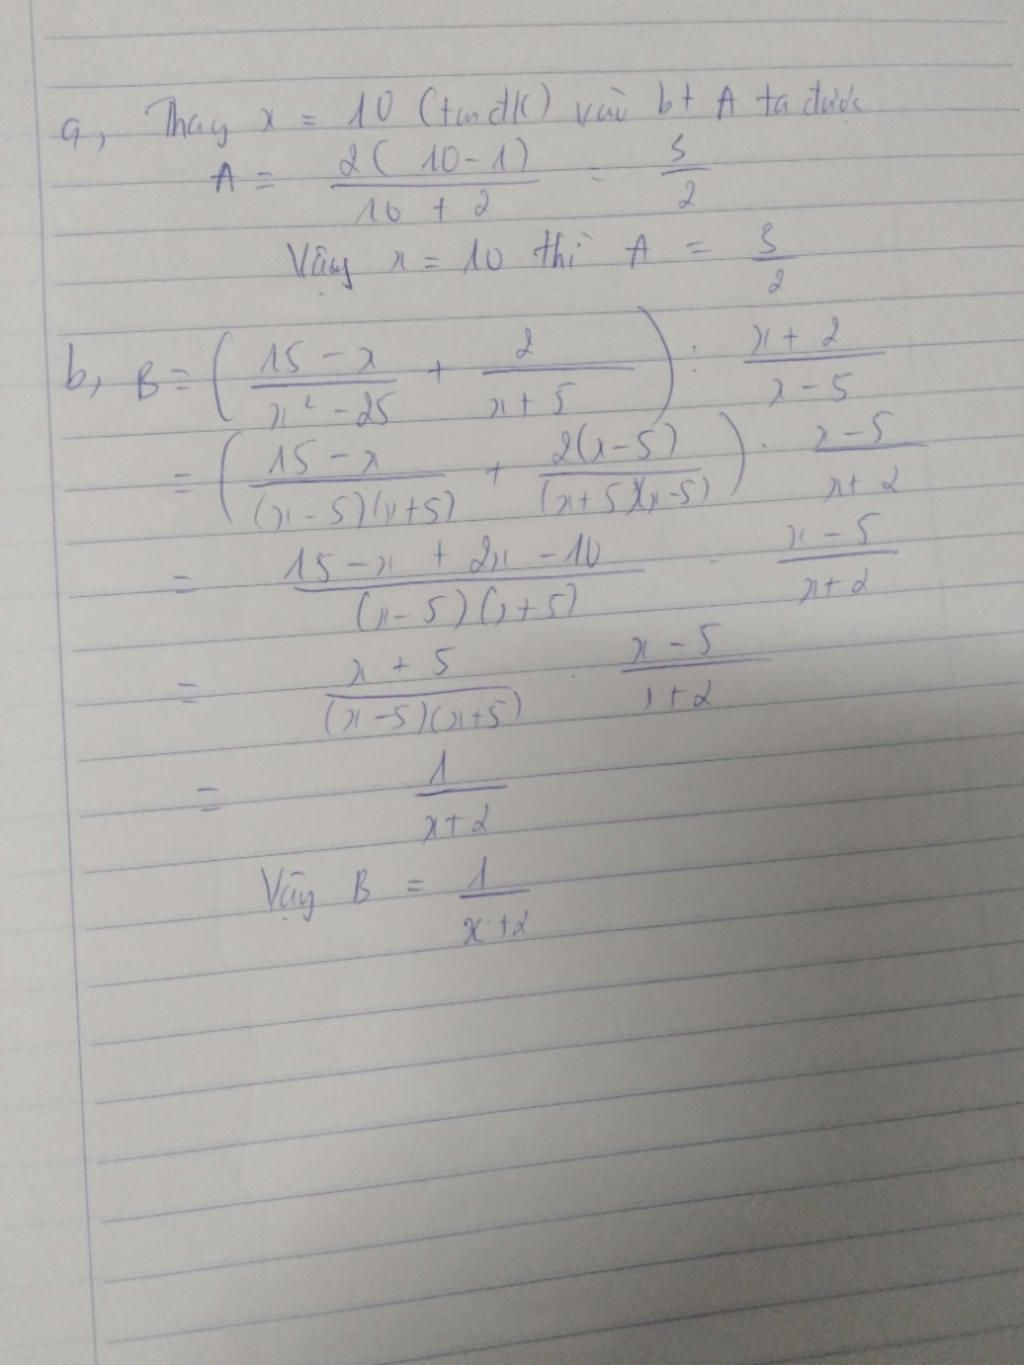 a, Thay x = 10 (tmđk) vào bt A ta được
A = 2(10-1)/10+2 = 3/2
Vậy x = 10 thì A = 3/2
b, B = (15-x/x²-25 + 2/x+5) : x+2/x-5
= (15-x/(x-5)(x+5) + 2(x-5)/(x+5)(x-5)) . x-5/x+2
= 15-x+2x-10/(x-5)(x+5) . x-5/x+2
= x+5/(x-5)(x+5) . x-5/x+2
= 1/x+2
Vậy B = 1/x+2